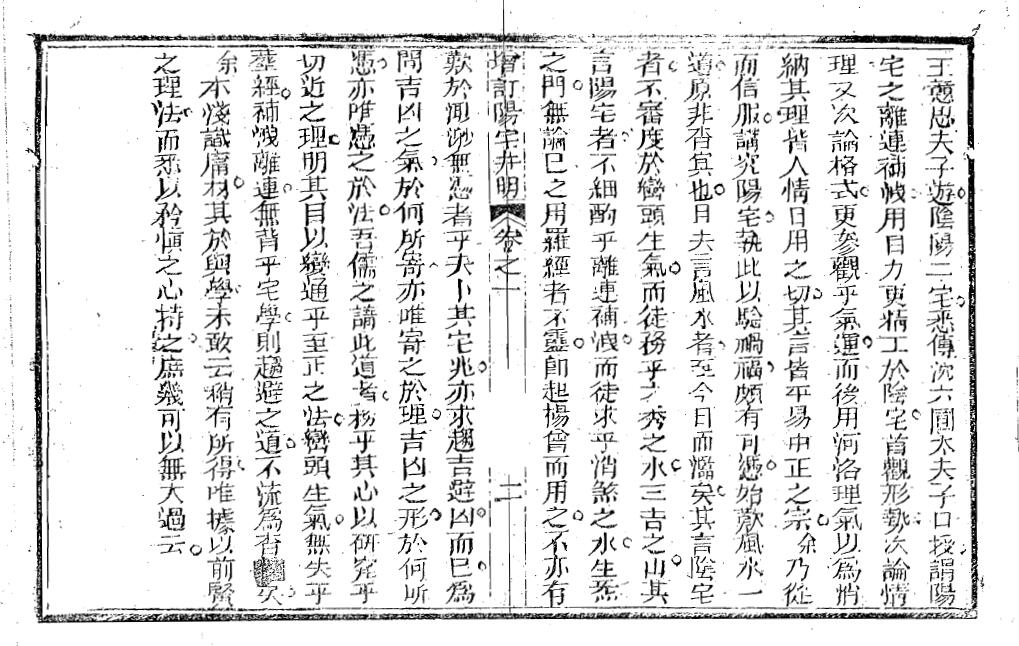 王憲思夫子遊陰陽二宅悉傳次六圃太夫子口授謂陽
宅之離連補洩用目力更精工於陰宅首觀形勢次論情
理又次論格式更參觀乎氣運而後用河洛理氣以為消
納其理皆人情日用之切其言皆平易中正之宗余乃從
而信服講究陽宅執此以驗禍福頗有可憑始歎風水一
道原非杳冥也且夫言風水者至今日而濫矣其言陰宅
者不審度於巒頭生氣而徒務乎之秀之水三吉之山其
言陽宅者不細酌乎離連補洩而徒求乎消煞之水生炁
之門無論巳之用羅經者不靈即起楊曾而用之不亦有
增訂陽宅井明 卷之一 二
歎於渺無憑者乎夫卜其宅兆亦求趨吉避凶而巳為
問吉凶之氣於何所寄亦唯寄之於理吉凶之形於何所
憑亦唯憑之於法吾儒之講此道者務乎其心以研究乎
切近之理明其目以變通乎至正之法巒頭生氣無失乎
葬經補洩離連無背乎宅學則趨避之道不流為杳矣
余本淺識庸材其於輿學未敢云稍有所得唯據以前賢
之理法而悉以矜慎之心持之庶幾可以無大過云